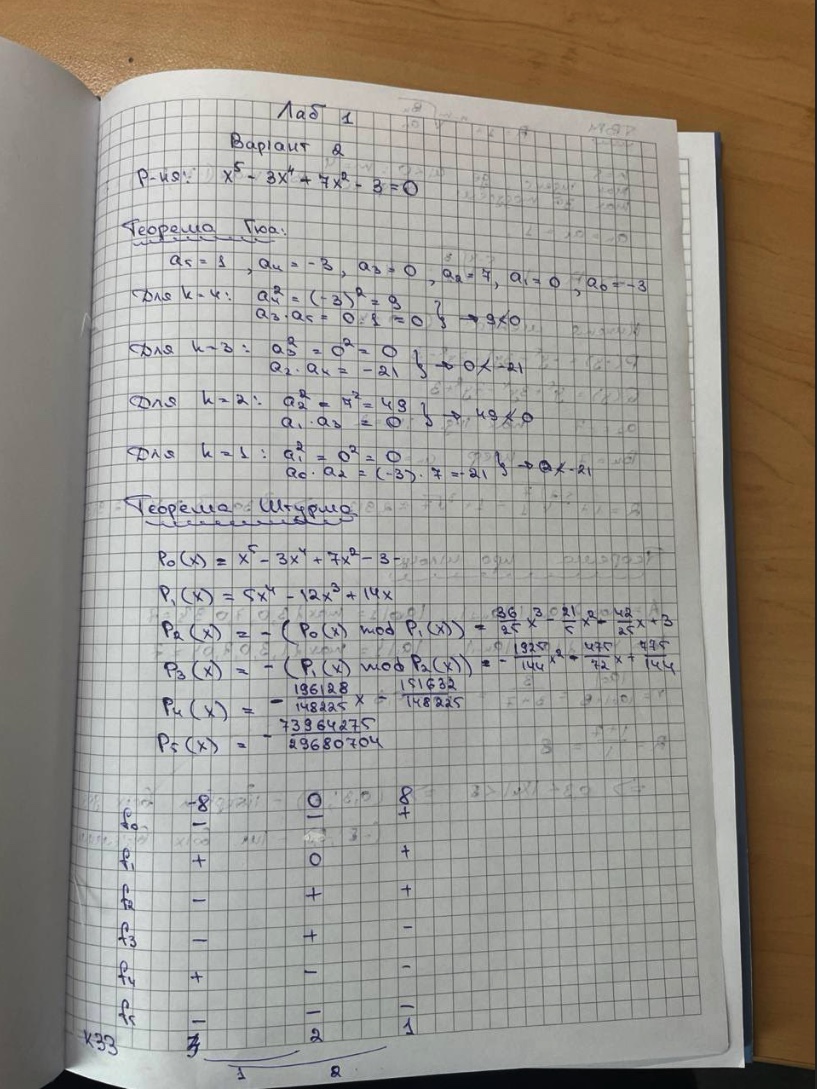 Лаб 1
Варіант 2
Р-ня: x⁵ - 3x⁴ + 7x² - 3 = 0
Теорема Гюа:
a₅ = 1 , a₄ = -3 , a₃ = 0 , a₂ = 7 , a₁ = 0 , a₀ = -3
Для k=4: a₄² = (-3)² = 9
a₃ · a₅ = 0 · 1 = 0 } → 9 ≮ 0
Для k=3: a₃² = 0² = 0
a₂ · a₄ = -21 } → 0 ≮ -21
Для k=2: a₂² = 7² = 49
a₁ · a₃ = 0 } → 49 ≮ 0
Для k=1: a₁² = 0² = 0
a₀ · a₂ = (-3) · 7 = -21 } → 0 ≮ -21
Теорема Штурма
P₀(x) = x⁵ - 3x⁴ + 7x² - 3
P₁(x) = 5x⁴ - 12x³ + 14x
P₂(x) = -(P₀(x) mod P₁(x)) = 36/25 x³ - 21/5 x² - 42/25 x + 3
P₃(x) = -(P₁(x) mod P₂(x)) = - 1925/144 x² - 475/72 x + 775/144
P₄(x) = - 196128/148225 x - 151632/148225
P₅(x) = - 73964275/29680704
-8 0 8
f₀ - - +
f₁ + 0 +
f₂ - + +
f₃ - + -
f₄ + - -
f₅ - - -
КЗЗ 2 1
1 2